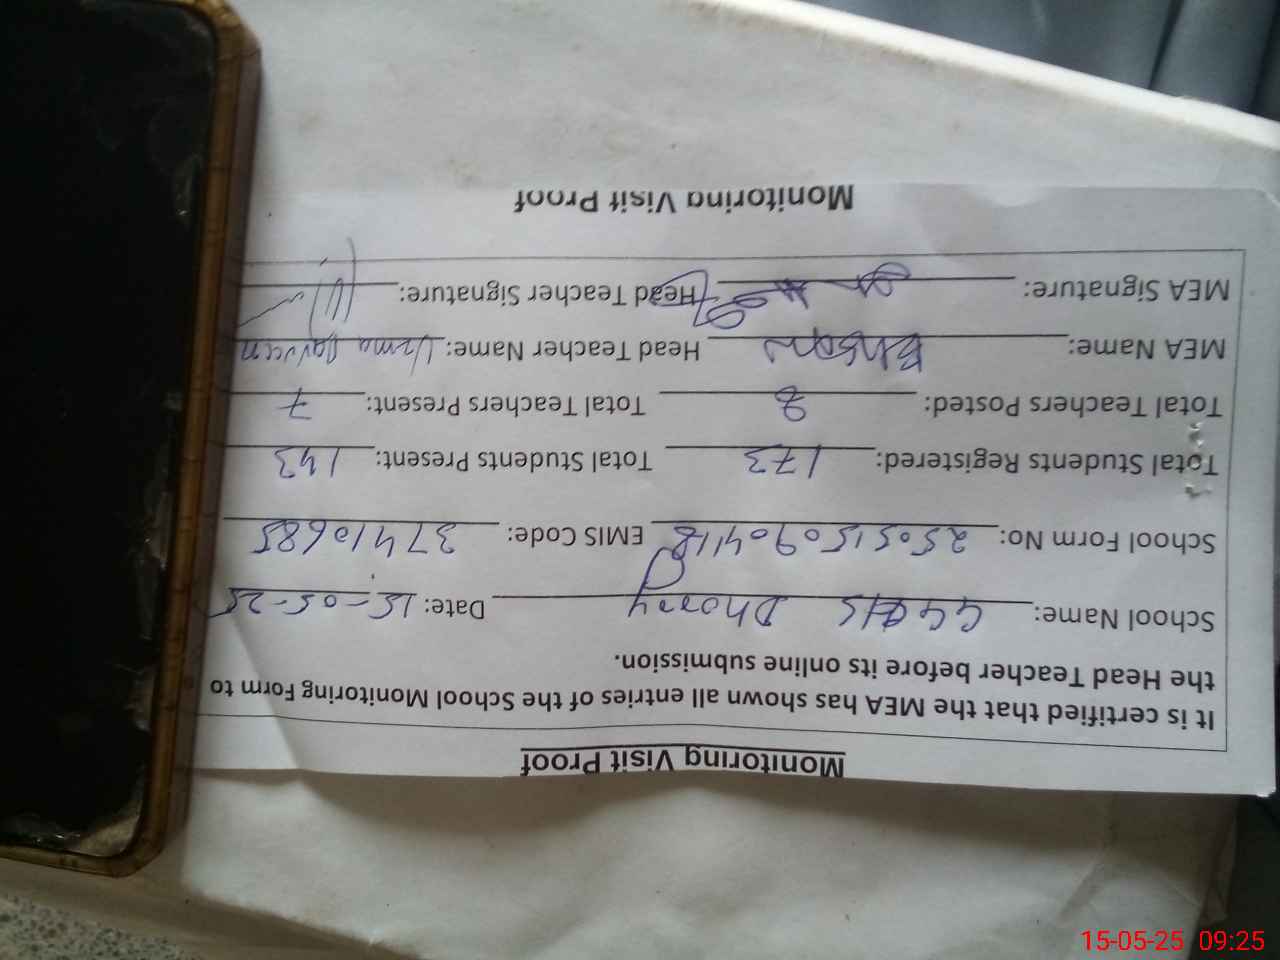 Monitoring Visit Proof
It is certified that the MEA has shown all entries of the School Monitoring Form to
the Head Teacher before its online submission.
School Name: GGHS Date: 15-05-25
School Form No: EMIS Code: 37410685
Total Students Registered: 173 Total Students Present: 143
Total Teachers Posted: 8 Total Teachers Present: 7
MEA Name: Head Teacher Name: Uzma Parveen
MEA Signature: Head Teacher Signature:
Monitoring Visit Proof
15-05-25 09:25